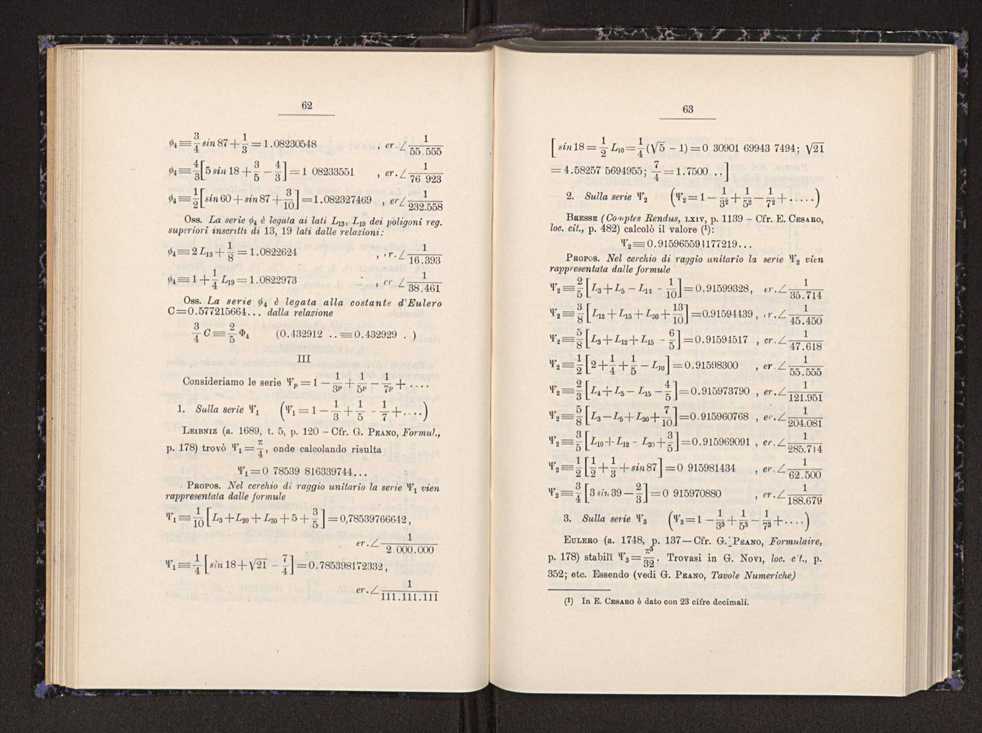 62
ϕ₄ ≡ 3/4 sin 87 + 1/3 = 1.08230548 , er. ∠ 1/55.555
ϕ₄ ≡ 4/3 [5 sin 18 + 3/5 − 4/3] = 1 08233551 , er. ∠ 1/76 923
ϕ₄ ≡ 1/2 [sin 60 + sin 87 + 3/10] = 1.082327469 , er. ∠ 1/232.558
Oss. La serie ϕ₄ è legata ai lati L₁₃, L₁₉ dei poligoni reg.
superiori inscritti di 13, 19 lati dalle relazioni:
ϕ₄ ≡ 2 L₁₃ + 1/8 = 1.0822624 , er. ∠ 1/16.393
ϕ₄ ≡ 1 + 1/4 L₁₉ = 1.0822973 , er. ∠ 1/38.461
Oss. La serie ϕ₄ è legata alla costante d'Eulero
C = 0.577215664... dalla relazione
3/4 C ≡ 2/5 Φ₄ (0.432912 .. ≡ 0.432929 . )
III
Consideriamo le serie Ψₚ = 1 − 1/3ᵖ + 1/5ᵖ − 1/7ᵖ + ....
1. Sulla serie Ψ₁ (Ψ₁ = 1 − 1/3 + 1/5 − 1/7 + ....)
Leibniz (a. 1689, t. 5, p. 120 – Cfr. G. Peano, Formul.,
p. 178) trovò Ψ₁ = π/4, onde calcolando risulta
Ψ₁ = 0 78539 816339744...
Propos. Nel cerchio di raggio unitario la serie Ψ₁ vien
rappresentata dalle formule
Ψ₁ ≡ 1/10 [L₃ + L₂₀ + L₂₀ + 5 + 3/5] = 0,78539766642,
er. ∠ 1/2 000.000
Ψ₁ ≡ 1/4 [sin 18 + √21 − 7/4] = 0.785398172332,
er. ∠ 1/111.111.111
63
[sin 18 = 1/2 L₁₀ = 1/4 (√5 − 1) = 0 30901 69943 7494; √21
= 4.58257 5694955; 7/4 = 1.7500 ..]
2. Sulla serie Ψ₂ (Ψ₂ = 1 − 1/3² + 1/5² − 1/7² + .....)
Bresse (Comptes Rendus, lxiv, p. 1139 – Cfr. E. Cesaro,
loc. cit., p. 482) calcolò il valore (¹):
Ψ₂ ≡ 0.915965594177219...
Propos. Nel cerchio di raggio unitario la serie Ψ₂ vien
rappresentata dalle formule
Ψ₂ ≡ 2/5 [L₃ + L₅ − L₁₄ − 1/10] = 0.91599328, er. ∠ 1/35.714
Ψ₂ ≡ 3/8 [L₁₂ + L₁₅ + L₂₀ + 13/10] = 0.91594439 , er. ∠ 1/45.450
Ψ₂ ≡ 5/8 [L₃ + L₁₂ + L₁₅ − 6/5] = 0.91594517 , er. ∠ 1/47.618
Ψ₂ ≡ 1/2 [2 + 1/4 + 1/5 − L₁₀] = 0.91598300 , er ∠ 1/55.555
Ψ₂ ≡ 2/3 [L₄ + L₅ − L₁₅ − 4/5] = 0.915973790 , er. ∠ 1/121.951
Ψ₂ ≡ 5/8 [L₃ − L₅ + L₂₀ + 7/10] = 0.915960768 , er. ∠ 1/204.081
Ψ₂ ≡ 3/5 [L₁₀ + L₁₂ − L₂₀ + 3/5] = 0.915969091 , er. ∠ 1/285.714
Ψ₂ ≡ 1/2 [1/2 + 1/3 + sin 87] = 0 915981434 , er. ∠ 1/62.500
Ψ₂ ≡ 3/4 [3 sin 39 − 2/3] = 0 915970880 , er. ∠ 1/188.679
3. Sulla serie Ψ₃ (Ψ₃ = 1 − 1/3³ + 1/5³ − 1/7³ + ....)
Eulero (a. 1748, p. 137 — Cfr. G. Peano, Formulaire,
p. 178) stabilì Ψ₃ = π³/32. Trovasi in G. Novi, loc. cit., p.
352; etc. Essendo (vedi G. Peano, Tavole Numeriche)
(¹) In E. Cesaro è dato con 23 cifre decimali.